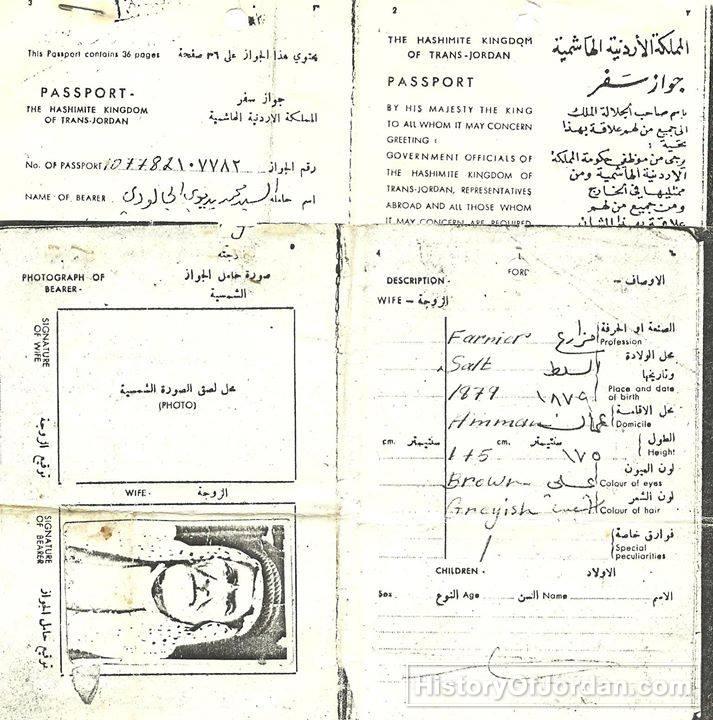 3
٣
This Passport contains 36 pages
يحتوي هذا الجواز على ٣٦ صفحة
PASSPORT -
THE HASHIMITE KINGDOM
OF TRANS-JORDAN
جواز سفر
المملكة الاردنية الهاشمية
No. OF PASSPORT 107782 ١٠٧٧٨٢ رقم الجواز
NAME OF BEARER السيد محمد بديوي الجالودي اسم حامله
2
٢
THE HASHIMITE KINGDOM
OF TRANS-JORDAN
PASSPORT
BY HIS MAJESTY THE KING
TO ALL WHOM IT MAY CONCERN
GREETING :
GOVERNMENT OFFICIALS OF
THE HASHIMITE KINGDOM OF
TRANS-JORDAN, REPRESENTATIVES
ABROAD AND ALL THOSE WHOM
IT MAY CONCERN ARE REQUIRED
المملكة الأردنية الهاشمية
جواز سفر
باسم صاحب الجلالة الملك
الى جميع من لهم علاقة بهذا
تحية :
يرجى من موظفي حكومة المملكة
الاردنية الهاشمية ومن
ممثليها في الخارج
ومن جميع من لهم
علاقة بهذا الشأن
PHOTOGRAPH OF
BEARER -
صورة حامل الجواز
الشمسية
SIGNATURE
OF WIFE
توقيع الزوجة
محل لصق الصورة الشمسية
(PHOTO)
WIFE - الزوجة
SIGNATURE
OF BEARER
توقيع حامل الجواز
4
DESCRIPTION - الاوصاف -
WIFE - الزوجة
Farmer مزارع الصنعة او الحرفة
Profession
Salt السلط محل الولادة
وتاريخها
1879 ١٨٧٩ Place and date
of birth
Amman عمان محل الاقامة
Domicile
cm. سنتيمتر cm. سنتيمتر الطول
175 ١٧٥ Height
Brown عسلي لون العيون
Colour of eyes
Greyish لون الشعر
Colour of hair
فوارق خاصة
Special
peculiarities
CHILDREN - الاولاد
Sex النوع Age السن Name الاسم
HistoryOfJordan.com